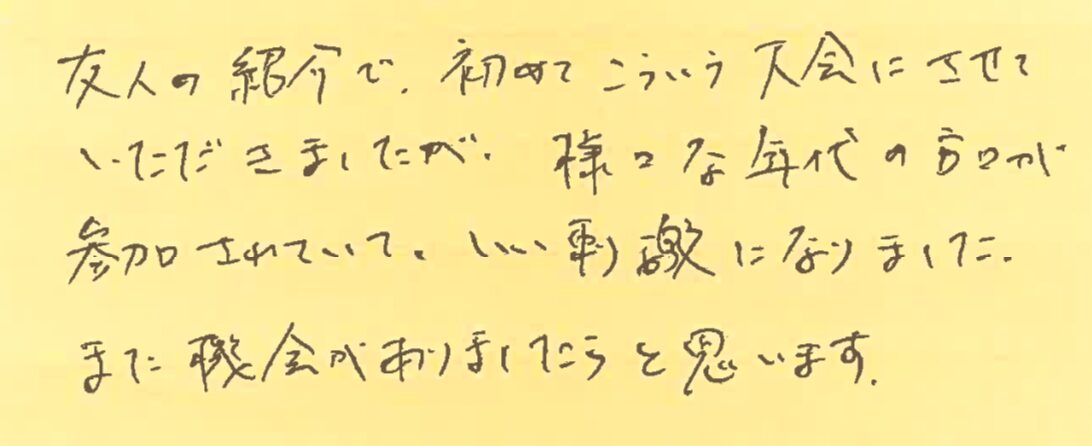 友人の紹介で、初めてこういう大会にさせて
いただきましたが、様々な年代の方々が
参加されていて、いい刺激になりました。
また機会がありましたらと思います。